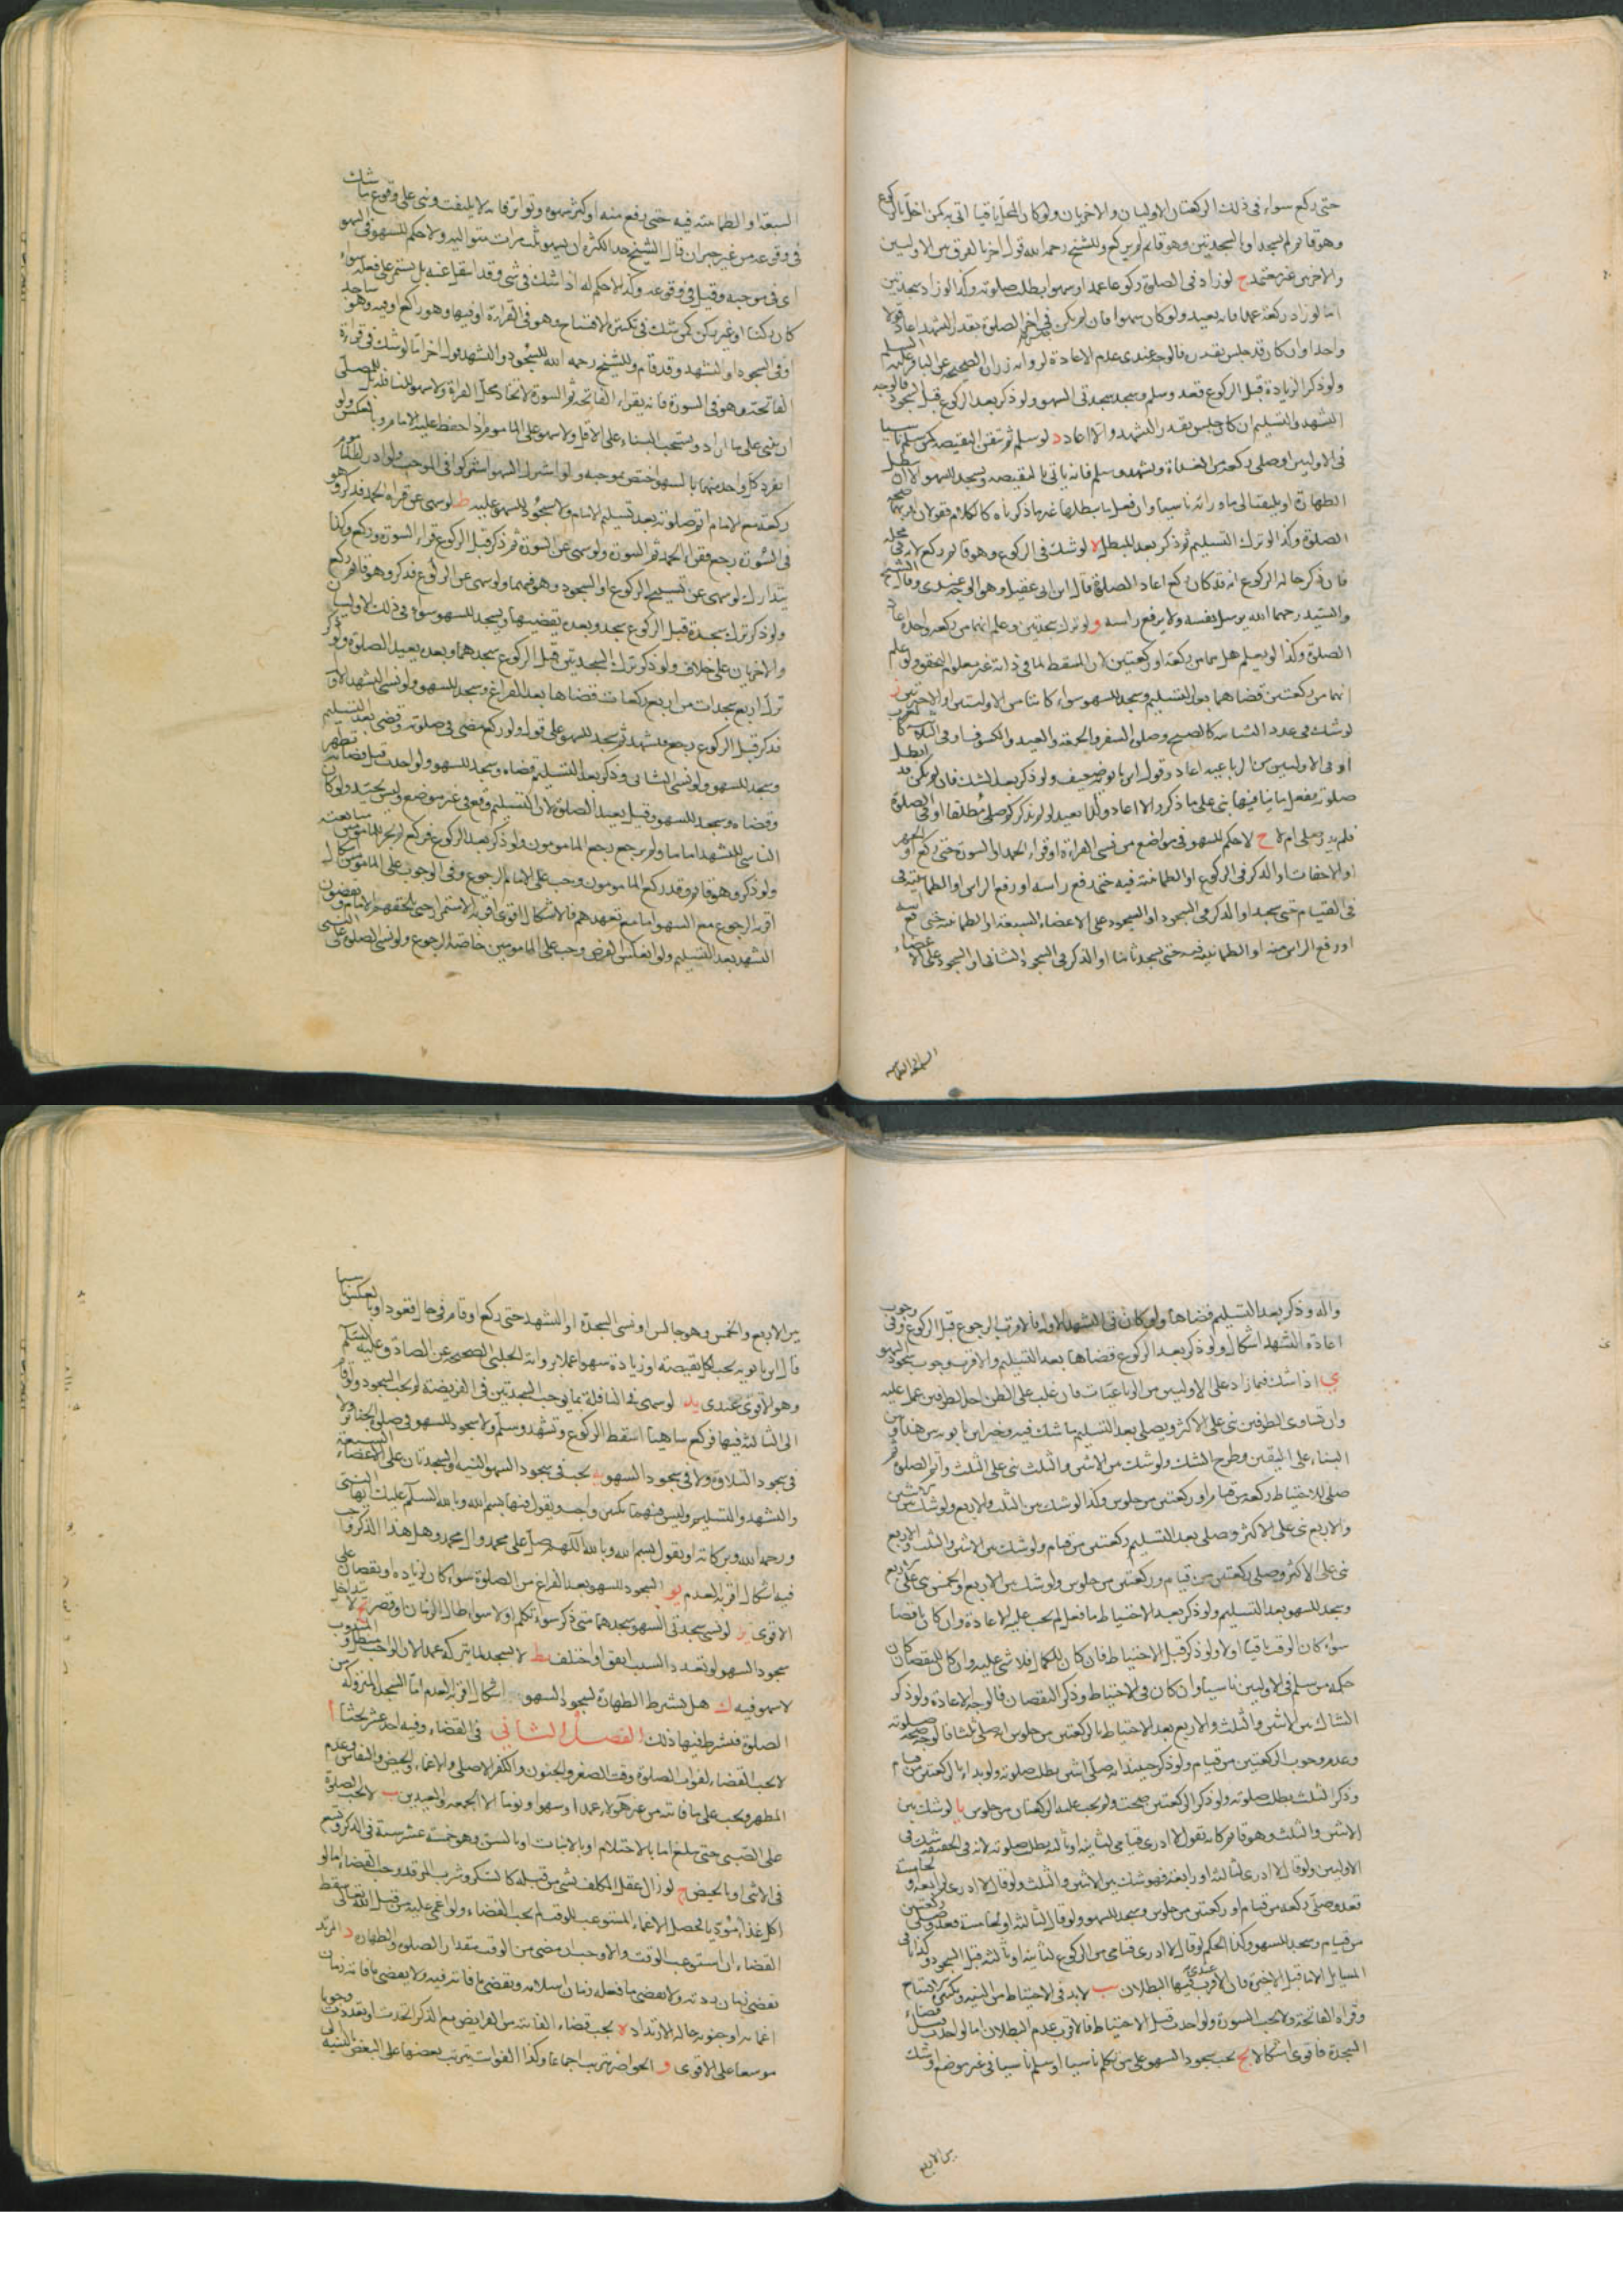 حتى ركع سواء فى ذلك الركعتان الاوليان والاخريان ولو كان المحل باقيا اتى به كمن اخل بالركوع
وهو قائم لم يسجد او بالسجدتين وهو قائم لم يركع وللشيخ رحمه الله قول اخر بالفرق بين الاوليين
والاخريين غير معتمد ج لو زاد فى الصلوة ركوعا عمدا او سهوا بطلت صلوته وكذا لو زاد سجدتين
اما لو زاد ركعة عمدا فانه يعيد ولو كان سهوا فان لم يكن فى اخر الصلوة بقدر التشهد اعاد قولا
واحدا وان كان قد جلس بقدره فالوجه عندى عدم الاعادة لرواية زرارة الصحيحة عن الباقر عليه السلم
ولو ذكر الزيادة قبل الركوع قعد وسلم وسجد سجدتى السهو ولو ذكر بعد الركوع قبل السجود فالوجه
التشهد والتسليم ان كان جلس بقدر التشهد والا اعاد د لو سلم ثم تيقن النقيصة كمن سلم ناسيا
فى الاوليين او صلى ركعة من الغداة وتشهد وسلم فانه ياتى بالنقيصة ويسجد للسهو الا ان يبطل
الطهارة او يلتفت الى ما ورائه ناسيا وان فعل ما يبطلها غير ما ذكرناه كالكلام فقولان اقربهما صحة
الصلوة وكذا لو ترك التسليم ثم ذكر بعد المبطل ه لو شك فى الركوع وهو قائم ركع لانه فى محله
فان ذكر حالة الركوع انه قد كان ركع اعاد الصلوة قاله ابن ابى عقيل وهو الوجه عندى وقال الشيخ
والسيد رحمهما الله يرسل نفسه ولا يرفع راسه و لو ترك سجدتين وعلم انهما من ركعة واحدة اعاد
الصلوة وكذا لو لم يعلم هل هما من ركعة او ركعتين لان المسقط لما فى ذاته غير معلوم التحقق ولو علم
انهما من ركعتين قضاهما بعد التسليم وسجد للسهو سواء كانتا من الاوليتين او الاخيرتين ز
لو شك فى عدد الثنائية كالصبح وصلوة السفر والجمعة والعيد والكسوف او فى الثلاثية كالمغرب
او فى الاوليين من الرباعية اعاد وقول ابن بابويه ضعيف ولو ذكر بعد الشك فان لم يكن قد ابطل
صلوته بفعل ما ينافيها بنى على ما ذكر والا اعاد وكذا يعيد لو لم يذكر كم صلى مطلقا او فى الصلوة
فلم يدر صلى ام لا ح لا حكم للسهو فى مواضع من نسى القراءة او قراءة الحمد او السورة حتى ركع او الجهر
او الاخفات او الذكر فى الركوع او الطمانينة فيه حتى رفع راسه او رفع الراس او الطمانينة فى
فى القيام حتى سجد او الذكر فى السجود او السجود على الاعضاء السبعة او الطمانينة حتى رفع راسه
او رفع الراس منه او الطمانينة فيه حتى يسجد ثانيا او الذكر فى السجود الثانى او السجود على الاعضاء
السبعة او الطمانينة
السبعة او الطمانينة فيه حتى رفع منه او كثر سهوه وتواتر فانه لا يلتفت ويبنى على وقوع ما شك
فى وقوعه من غير جبران قال الشيخ حد الكثرة ان يسهو ثلث مرات متوالية ولا حكم للسهو فى السهو
اى فى موجبه وقيل فى وقوعه وكذا لا حكم له اذا شك فى شى وقد انتقل عنه بل يستمر على فعله سواء
كان ركنا او غير ركن كمن شك فى تكبيرة الافتتاح وهو فى القراءة او فيها وهو راكع او فيه وهو ساجد
او فى السجود او التشهد وقد قام وللشيخ رحمه الله للسجود والتشهد قول اخر اما لو شك فى قراءة
الفاتحة وهو فى السورة فانه يقراء الفاتحة ثم السورة لاتحاد محل القراءة ولا سهو للنافلة بل للمصلى
ان يبنى على ما اراد ويستحب البناء على الاقل ولا سهو على الماموم اذا حفظ عليه الامام وبالعكس ولو
انفرد كل واحد منهما بالسهو اختص بموجبه ولو اشترك السهو اشتركوا فى الموجب ولو ادرك الماموم
ركعة مع الامام اتم صلوته بعد تسليم الامام ولا سجود للسهو عليه ط لو سهى عن قراءة الحمد فذكر وهو
فى السورة رجع فقراء الحمد ثم السورة ولو سهى عن السورة ثم ذكر قبل الركوع قراء السورة وركع وكذا
يتدارك لو سهى عن تسبيح الركوع او السجود وهو فيهما ولو سهى عن الركوع فذكر وهو قائم ركع
ولو ذكر ترك سجدة قبل الركوع سجد وبعده يقضيها ويسجد للسهو سواء فى ذلك الاوليان
والاخريان على خلاف ولو ذكر ترك السجدتين قبل الركوع سجدهما وبعده يعيد الصلوة ولو ذكر
ترك اربع سجدات من اربع ركعات قضاها بعد الفراغ وسجد للسهو ولو نسى التشهد الاول
فذكر قبل الركوع رجع فتشهد ثم سجد للسهو على قول ولو ركع مضى فى صلوته وقضى بعد التسليم
وسجد للسهو ولو نسى الثانى وذكر بعد التسليم قضاه وسجد للسهو ولو احدث قبل قضائه تطهر
وقضاه وسجد للسهو وقيل يعيد الصلوة لان التسليم وقع فى غير موضعه وليس بجيد ولو كان
الناسى للتشهد اماما ولم يرجع رجع المامومون ولو ذكر بعد الركوع فركع لم يجز للمامومين متابعته
ولو ذكر وهو قائم وقد ركع المامومون وجب على الامام الرجوع وفى الوجوب على المامومين اشكال
اقربه الرجوع مع السهو اما مع تعمدهم فالاشكال اقوى اقربه الاستمرار حتى يلحقهم الامام ويقضون
التشهد بعد التسليم ولو انعكس الفرض وجب على المامومين خاصة الرجوع ولو نسى الصلوة على النبى
واله وذكر بعد التسليم قضاها ولو كان فى التشهد الاول فالاقرب الرجوع قبل الركوع وفى وجوب
اعادة التشهد اشكال ولو ذكر بعد الركوع قضاها بعد التسليم والاقرب وجوب سجود السهو
ى اذا شك فيما زاد على الاوليين من الرباعيات فان غلب على الظن احد الطرفين عمل عليه
وان تساوى الطرفين بنى على الاكثر ويصلى بعد التسليم ما شك فيه وخير ابن بابويه بين هذا وبين
البناء على اليقين وطرح الشك ولو شك بين الاثنين والثلث بنى على الثلث واتم الصلوة ثم
صلى للاحتياط ركعة من قيام او ركعتين من جلوس وكذا لو شك بين الثلث والاربع ولو شك بين الاثنين
والاربع بنى على الاكثر وصلى بعد التسليم ركعتين من قيام ولو شك بين الاثنين والثلث والاربع
بنى على الاكثر وصلى ركعتين من قيام وركعتين من جلوس ولو شك بين الاربع والخمس بنى على الاربع
وسجد للسهو بعد التسليم ولو ذكر بعد الاحتياط ما فعل لم يجب عليه الاعادة وان كان ناقصا
سواء كان الوقت باقيا اولا ولو ذكر قبل الاحتياط فان كان للكمال فلا شى عليه وان كان للنقصان كان
حكمه من سلم فى الاوليين ناسيا وان كان فى الاحتياط وذكر النقصان فالوجه الاعادة ولو ذكر
الشاك بين الاثنين والثلث والاربع بعد الاحتياط بالركعتين من جلوس انه صلى ثلثا فالوجه صحة صلوته
وعدم وجوب الركعتين من قيام ولو ذكر حينئذ انه صلى اثنتين بطلت صلوته ولو بداء بالركعتين من قيام
وذكر الثلث بطلت صلوته ولو ذكر الركعتين صحت ولم يجب عليه الركعتان من جلوس يا لو شك بين
الاثنين والثلث وهو قائم كانه تقول لا ادرى قيامى لثانية او ثالثة بطلت صلوته لانه فى الحقيقة شك فى
الاوليين ولو قال لا ادرى لثالثة او رابعة فهو شك بين الاثنين والثلث ولو قال لا ادرى لرابعة او لخامسة
قعد وصلى ركعة من قيام او ركعتين من جلوس وسجد للسهو ولو قال لثالثة او لخامسة قعد وصلى ركعتين
من قيام وسجد للسهو وكذا الحكم لو قال لا ادرى قيامى من الركوع لثانية او ثالثة قبل السجود وكذا باقى
المسايل الا ما قبل الاخيرة فان الاقرب عندى فيها البطلان يب لا بد فى الاحتياط من النية وتكبيرة الافتتاح
وقراءة الفاتحة ولا يجب السورة ولو احدث قبل الاحتياط فالاقرب عدم البطلان اما لو احدث قبل قضاء
السجدة فاقوى اشكالا يج يجب سجود السهو على من تكلم ناسيا او سلم ناسيا فى غير موضعه او شك
بين الاربع
بين الاربع والخمس وهو جالس او نسى السجدة او التشهد حتى ركع او قام فى حال قعود او بالعكس ناسيا
قال ابن بابويه يجب لكل نقيصة او زيادة سهوا عملا برواية الحلبى الصحيحة عن الصادق عليه السلم
وهو الاقوى عندى يد لو سهى فى النافلة بما يوجب السجدتين فى الفريضة لم يجب السجود ولو قام
الى الثالثة فيها فركع ساهيا اسقط الركوع وتشهد وسلم ولا سجود للسهو فى صلوة الجنائز ولا
فى سجود التلاوة ولا فى سجود السهو يه يجب فى سجود السهو النية والسجدتان على الاعضاء السبعة
والتشهد والتسليم وليس فيهما تكبير واجب ويقول فيهما بسم الله وبالله السلام عليك ايها النبى
ورحمة الله وبركاته او يقول بسم الله وبالله اللهم صل على محمد وال محمد وهل هذا الذكر واجب
فيه اشكال اقربه العدم يو السجود للسهو بعد الفراغ من الصلوة سواء كان لزيادة او نقصان على
الاقوى يز لو نسى سجدتى السهو سجدهما متى ذكر سواء تكلم اولا سواء طال الزمان او قصر يح لا تداخل
سجود السهو لو تعدد السبب اتفق او اختلف يط لا يسجد لما يتركه عمدا لان الواجب مبطل والمندوب
لا سهو فيه ك هل يشترط الطهارة لسجود السهو اشكال اقربه العدم اما السجدة المتروكة من
الصلوة فيشترط فيها ذلك الفصل الثانى فى القضاء وفيه احد عشر بحثا ا
لا يجب القضاء لفوات الصلوة وقت الصغر والجنون والكفر الاصلى والاغماء والحيض والنفاس وعدم
المطهر ويجب على ما فاته من غير هؤلاء عمدا او سهوا ونوما الا الجمعة والعيدين ب لا يجب الصلوة
على الصبى حتى يبلغ اما بالاحتلام او بالانبات او بالسن وهو خمسة عشر سنة فى الذكر وتسع
فى الانثى او بالحيض ج لو زال عقل المكلف بشى من قبله كالسكر وشرب المرقد وجب القضاء اما لو
اكل غذاء مؤذيا فحصل الاغماء المستوعب للوقت لم يجب القضاء ولو اغمى عليه من قبل الله تعالى سقط
القضاء ان استوعب الوقت والا وجب ان مضى من الوقت مقدار الصلوة والطهارة د المرتد
يقضى زمان ردته ولا يقضى ما فعله زمان اسلامه ويقضى ما فاته فيه ولا يقضى ما فاته زمان
اغمائه او جنونه حالة الارتداد ه يجب قضاء الفائتة من الفرايض مع الذكر اتحدت او تعددت وجوبا
موسعا على الاقوى و الحواضر تترتب اجماعا وكذا الفوائت يترتب بعضها على البعض بالنسبة الى